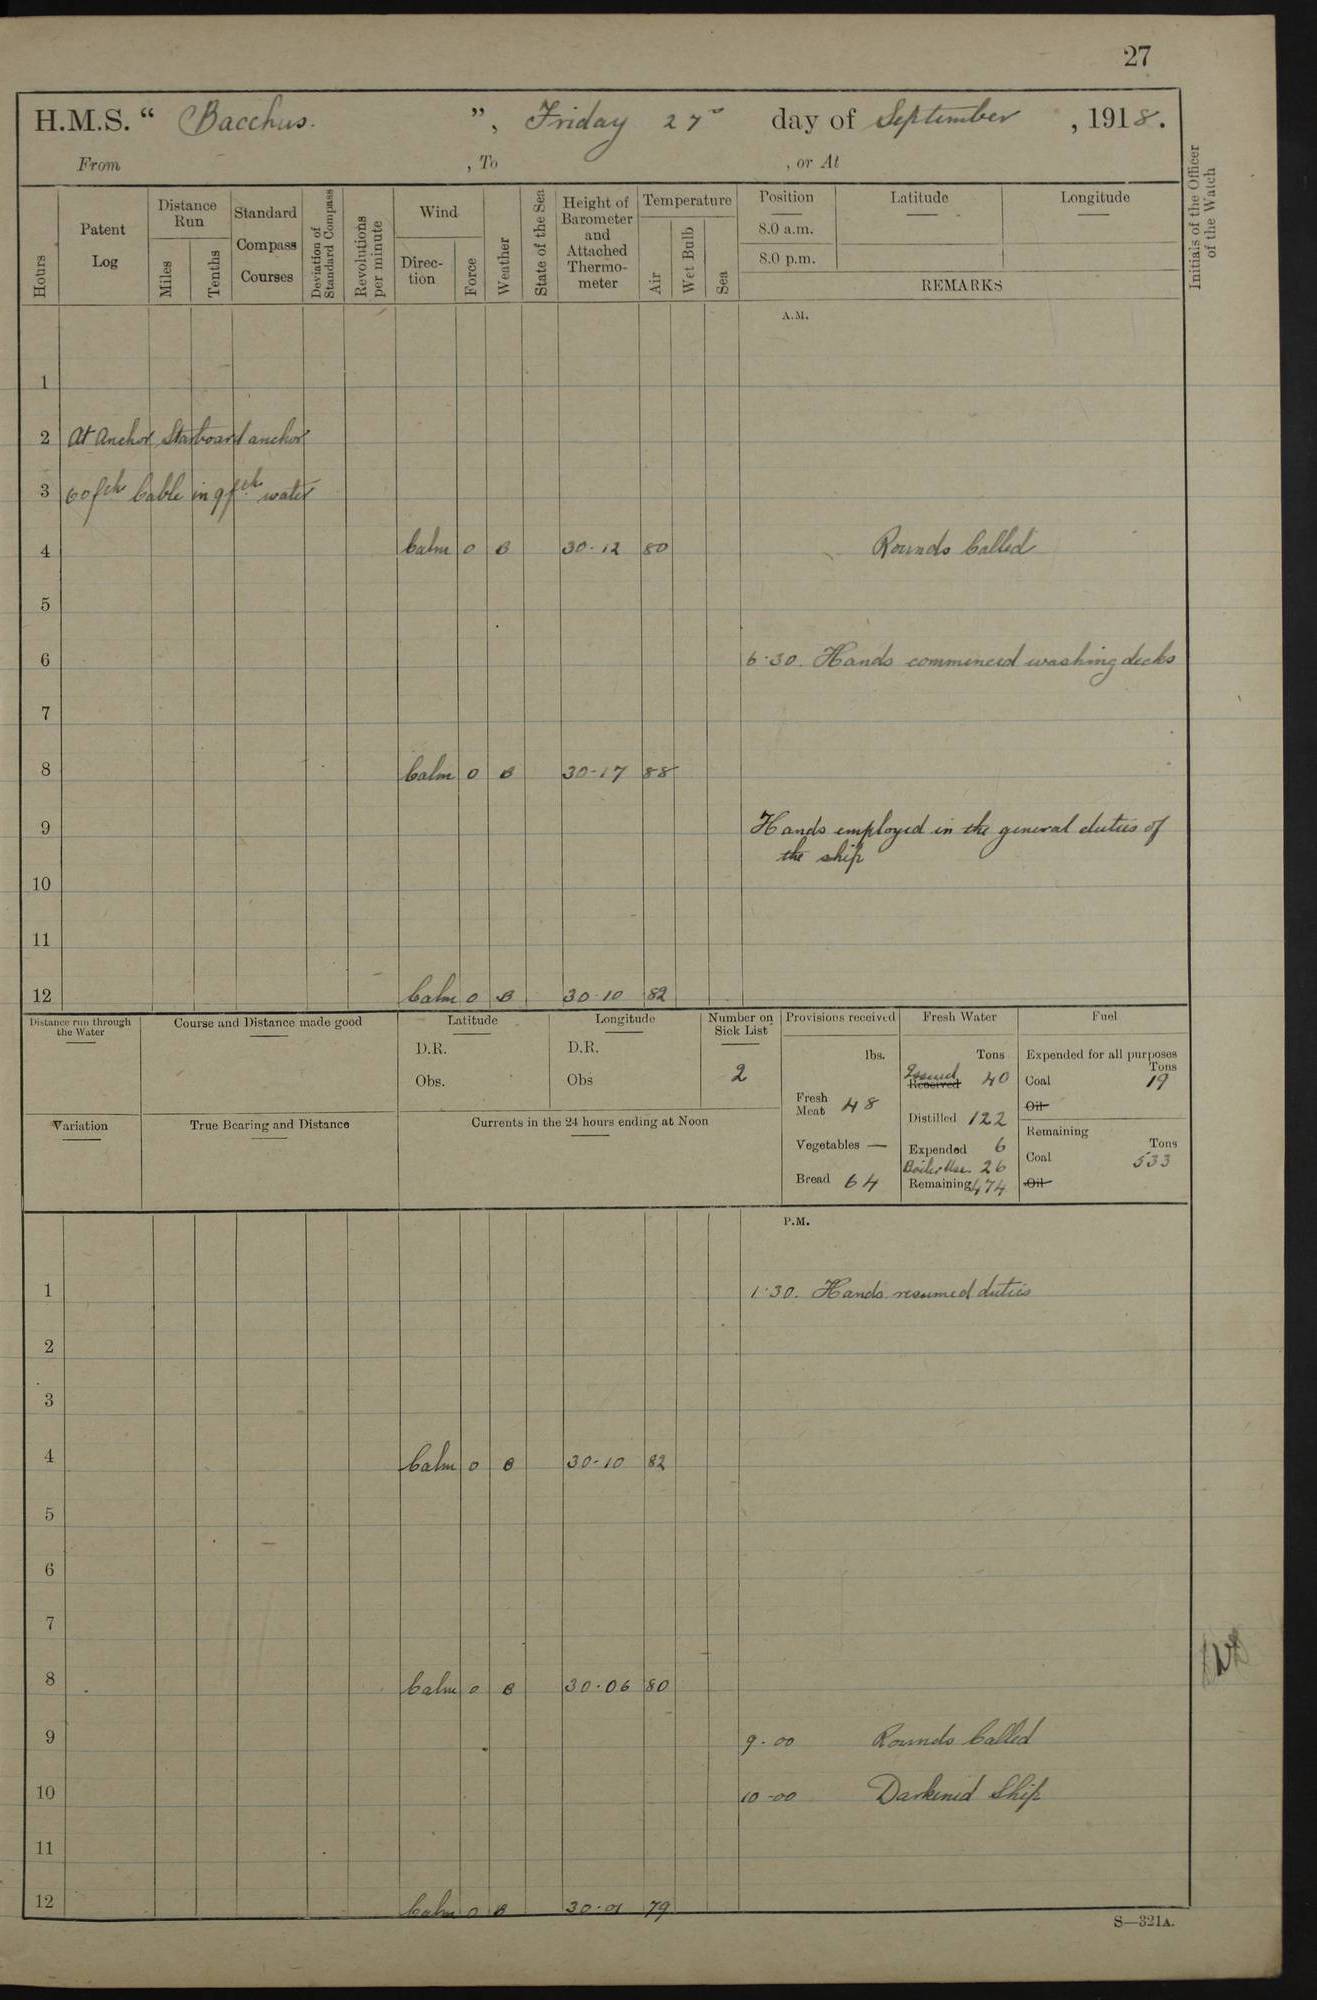 27
H.M.S. “ Bacchus. ”, Friday 27th day of September, 1918.
From , To , or At
Hours
Patent Log
Distance Run
Miles
Tenths
Standard Compass Courses
Deviation of Standard Compass
Revolutions per minute
Wind
Direc-tion
Force
Weather
State of the Sea
Height of Barometer and Attached Thermo-meter
Temperature
Air
Wet Bulb
Sea
Position
Latitude
Longitude
8.0 a.m.
8.0 p.m.
REMARKS
Initials of the Officer of the Watch
A.M.
1
2 At Anchor Starboard anchor
3 60 fths Cable in 9 fth water
4 Calm 0 B 30-12 80 Rounds Called
5
6 6.30. Hands commenced washing decks
7
8 Calm 0 B 30-17 88
9 Hands employed in the general duties of
the ship
10
11
12 Calm 0 B 30-10 82
Distance run through the Water
Course and Distance made good
Latitude
D.R.
Obs.
Longitude
D.R.
Obs
Number on Sick List
2
Provisions received
lbs.
Fresh Meat 48
Vegetables —
Bread 64
Fresh Water
Tons
Issued
Received 40
Distilled 122
Expended 6
Boiler Use. 26
Remaining 474
Fuel
Expended for all purposes
Tons
Coal 19
Oil
Remaining
Tons
Coal 533
Oil
Variation
True Bearing and Distance
Currents in the 24 hours ending at Noon
P.M.
1 1.30. Hands resumed duties
2
3
4 Calm 0 B 30-10 82
5
6
7
8 Calm 0 B 30.06 80
9 9.00 Rounds Called
10 10-00 Darkened Ship
11
12 Calm 0 B 30.01 79
S—321A.